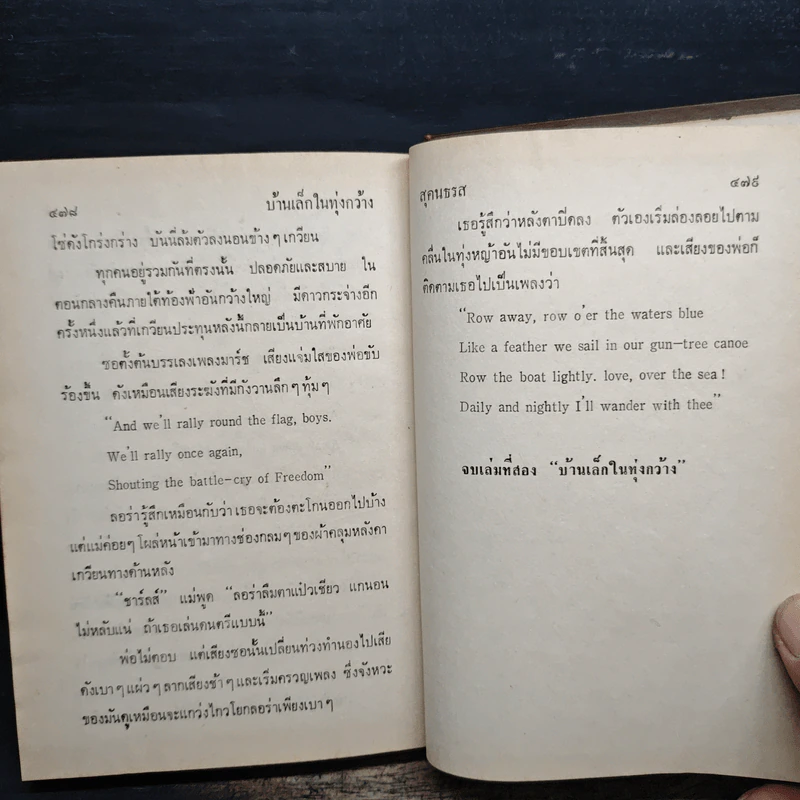 ๔๗๘ บ้านเล็กในทุ่งกว้าง
โซ่ดังโกร่งกร่าง บันนี่ล้มตัวลงนอนข้าง ๆ เกวียน
ทุกคนอยู่รวมกันที่ตรงนั้น ปลอดภัยและสบาย ใน
ตอนกลางคืนภายใต้ท้องฟ้าอันกว้างใหญ่ มีดาวกระจ่างอีก
ครั้งหนึ่งแล้วที่เกวียนประทุนหลังนี้กลายเป็นบ้านที่พักอาศัย
ซอตั้งต้นบรรเลงเพลงมาร์ช เสียงแจ่มใสของพ่อขับ
ร้องขึ้น ดังเหมือนเสียงระฆังที่มีกังวานลึก ๆ ทุ้ม ๆ
"And we'll rally round the flag, boys.
We'll rally once again,
Shouting the battle-cry of Freedom"
ลอร่ารู้สึกเหมือนกับว่า เธอจะต้องตะโกนออกไปบ้าง
แต่แม่ค่อยๆ โผล่หน้าเข้ามาทางช่องกลมๆ ของผ้าคลุมหลังคา
เกวียนทางด้านหลัง
"ชาร์ลส์" แม่พูด "ลอร่าลืมตาแป๋วเชียว แกนอน
ไม่หลับแน่ ถ้าเธอเล่นดนตรีแบบนี้"
พ่อไม่ตอบ แต่เสียงซอนั้นเปลี่ยนท่วงทำนองไปเสีย
ดังเบา ๆ แผ่ว ๆ ลากเสียงช้า ๆ และเริ่มครวญเพลง ซึ่งจังหวะ
ของมันดูเหมือนจะแกว่งไกวโยกลอร่าเพียงเบา ๆ
สุคนธรส ๔๗๙
เธอรู้สึกว่าหลังตาปิดลง ตัวเองเริ่มล่องลอยไปตาม
คลื่นในทุ่งหญ้าอันไม่มีขอบเขตที่สิ้นสุด และเสียงของพ่อก็
ติดตามเธอไปเป็นเพลงว่า
"Row away, row o'er the waters blue
Like a feather we sail in our gun-tree canoe
Row the boat lightly. love, over the sea!
Daily and nightly I'll wander with thee"
จบเล่มที่สอง "บ้านเล็กในทุ่งกว้าง"